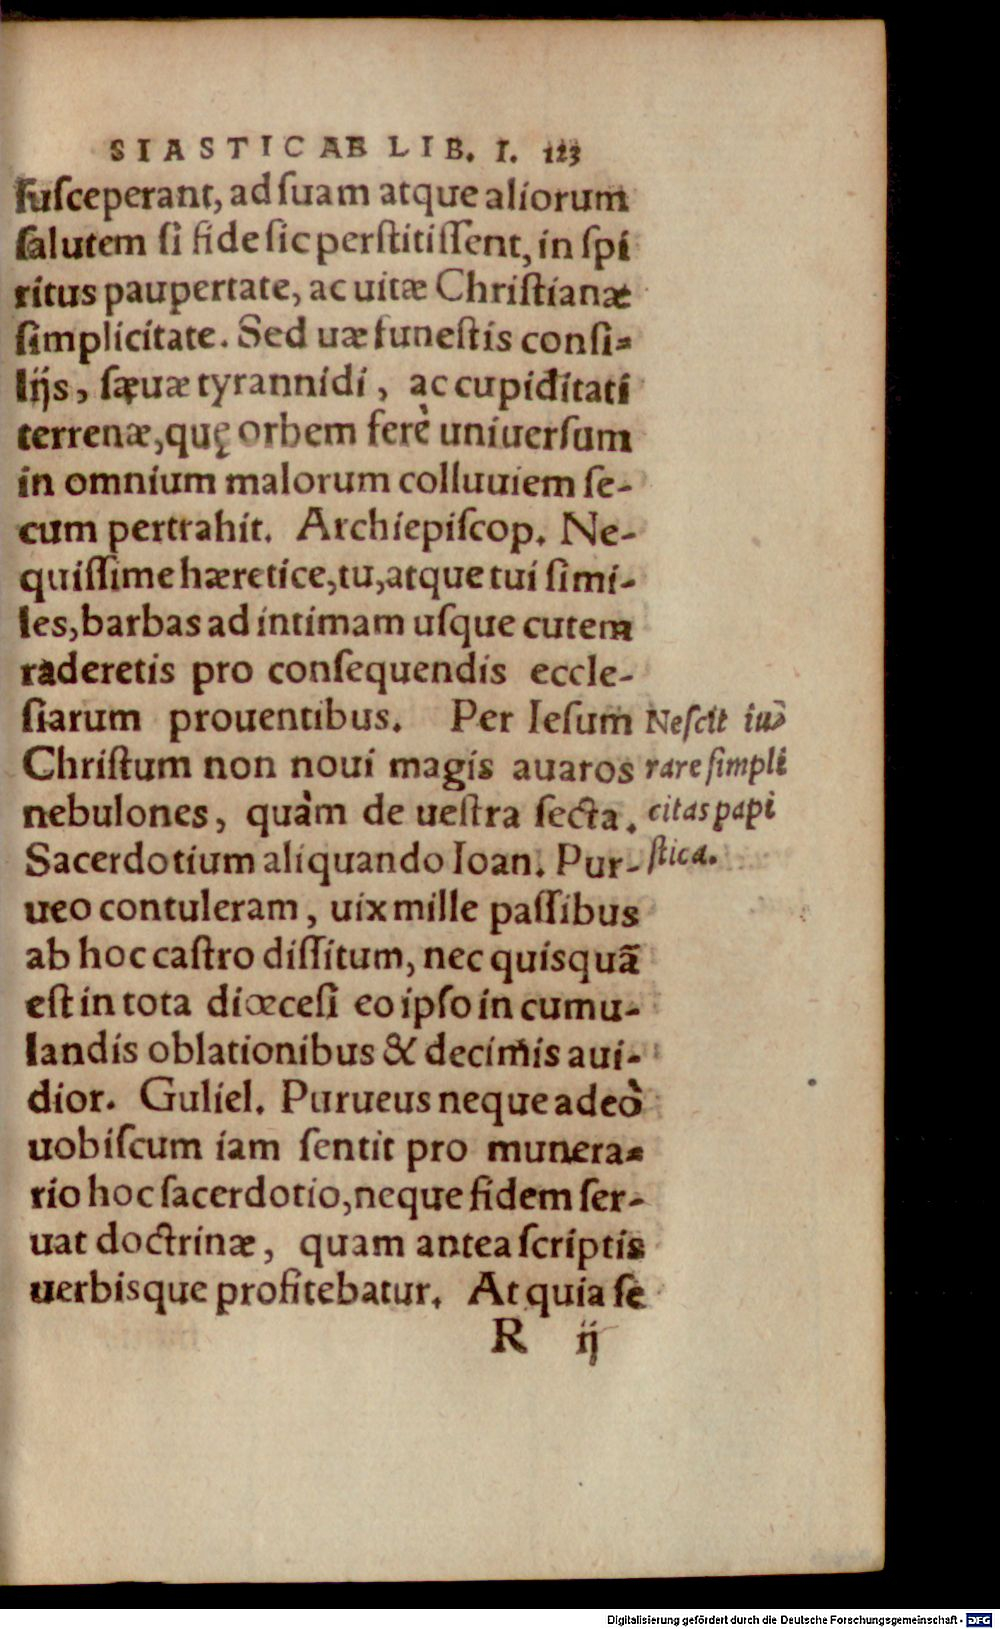 SIASTICAE LIB. I. 123
susceperant, ad suam atque aliorum
salutem si fide sic perstitissent, in spi
ritus paupertate, ac uitæ Christianæ
simplicitate. Sed uæ funestis consi-
lijs, sęuæ tyrannidi, ac cupiditati
terrenæ, quę orbem ferè uniuersum
in omnium malorum colluuiem se-
cum pertrahit. Archiepiscop. Ne-
quissime hæretice, tu, atque tui simi-
les, barbas ad intimam usque cutem
raderetis pro consequendis eccle-
siarum prouentibus. Per Iesum
Christum non noui magis auaros
nebulones, quàm de uestra secta.
Sacerdotium aliquando Ioan. Pur-
ueo contuleram, uix mille passibus
ab hoc castro dissitum, nec quisquã
est in tota diœcesi eo ipso in cumu-
landis oblationibus & decimis aui-
dior. Guliel. Purueus neque adeò
uobiscum iam sentit pro munera-
rio hoc sacerdotio, neque fidem ser-
uat doctrinæ, quam antea scriptis
uerbisque profitebatur. At quia se
R ij
Nescit iu
rare simpli
citas papi
stica.
Digitalisierung gefördert durch die Deutsche Forschungsgemeinschaft - DFG